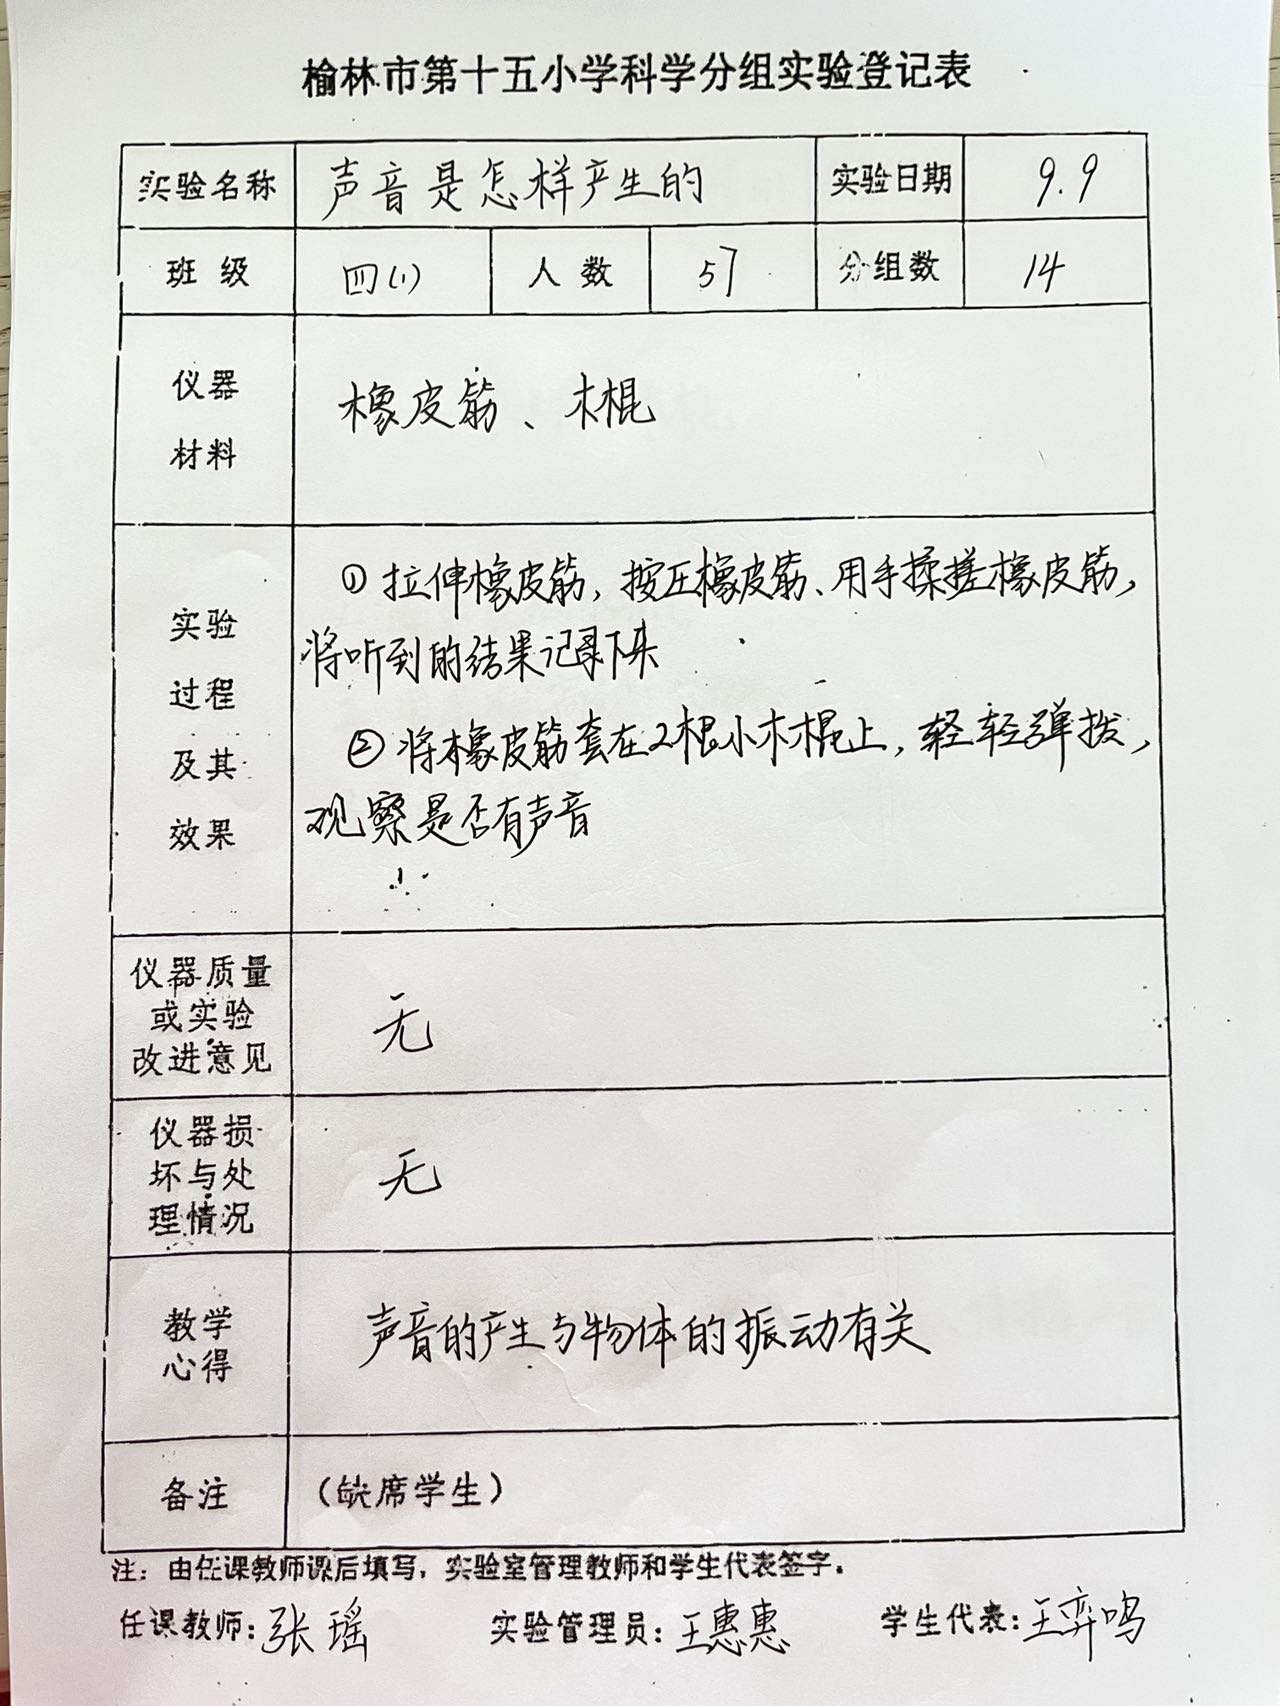 榆林市第十五小学科学分组实验登记表
实验名称 声音是怎样产生的 实验日期 9.9
班级 四(1) 人数 57 分组数 14
仪器
材料
橡皮筋、木棍
实验
过程
及其
效果
①拉伸橡皮筋,按压橡皮筋、用手揉搓橡皮筋,
将听到的结果记录下来
②将橡皮筋套在2根小木棍上,轻轻弹拨,
观察是否有声音
仪器质量
或实验
改进意见
无
仪器损
坏与处
理情况
无
教学
心得
声音的产生与物体的振动有关
备注 (缺席学生)
注:由任课教师课后填写,实验室管理教师和学生代表签字。
任课教师:张瑶 实验管理员:王惠惠 学生代表:王弈鸣